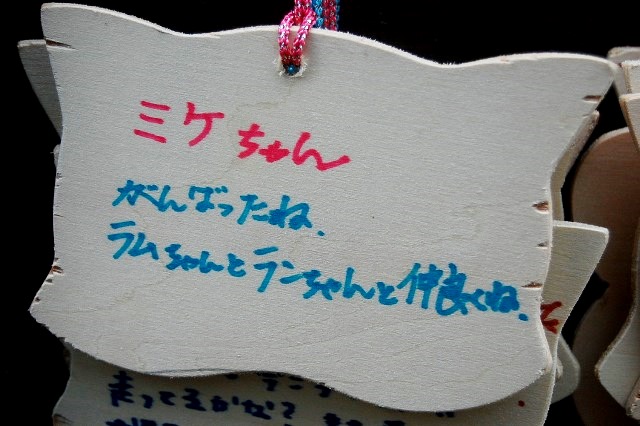 ミケちゃん
がんばったね.
ラムちゃんとランちゃんと仲良くね.
走って